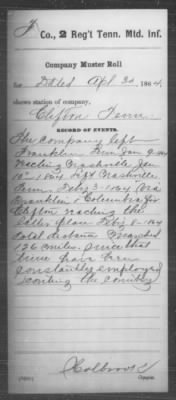 J Co., 2 Reg't Tenn. Mtd. Inf.
Company Muster Roll
for Dated Apl 30, 1864,
shows station of company,
Clifton Tenn.
RECORD OF EVENTS.
The Company left
Franklin Tenn Jan 9-64
Nashville Jan
10" 1864 left Nashville
Tenn. Feby 3-1864 via
Franklin & Columbia for
Clifton reaching the
latter place Feby 8-1864
total distance Marched
126 miles. since that
time have been
constantly employed
scouting the country
Holbrook
Copyist.